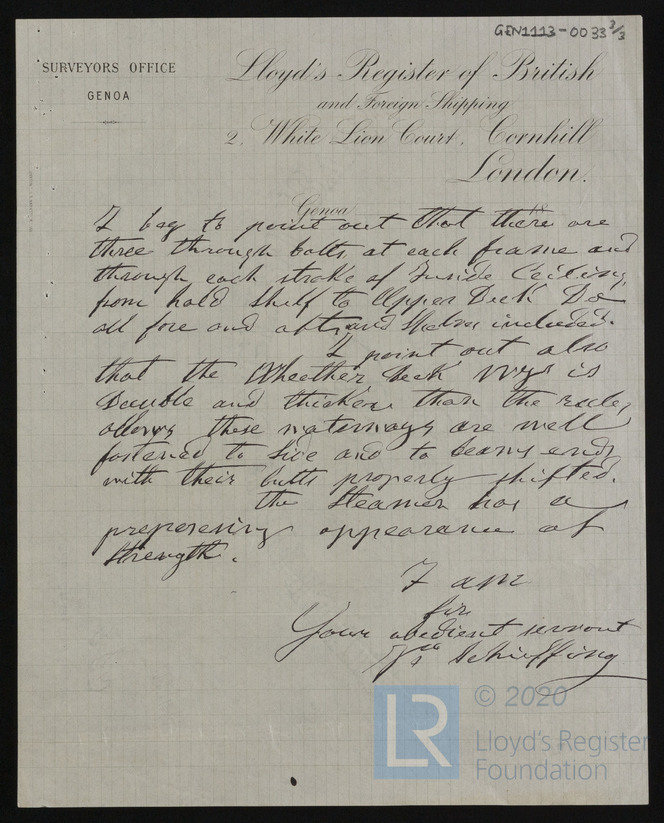 GEN1113-0033 3/3
SURVEYORS OFFICE
GENOA
Lloyd's Register of British
and Foreign Shipping
2, White Lion Court, Cornhill
London.
Genoa 18
I beg to point out that there are
three through bolts at each frame and
through each strake of Inside Ceiling
from hold shelf to Upper Deck Do
all fore and aft, and Shelves included.
I point out also
that the Wheether deck Wys is
Double and thicker than the rules
allows these waterways are well
fastened to side and to beams ends
with their butts properly shifted.
the Steamer has a
preposesing appearance of
Strength.
I am
Sir
Your obedient servant
Schiaffino
© 2020
LR
Lloyd's Register
Foundation